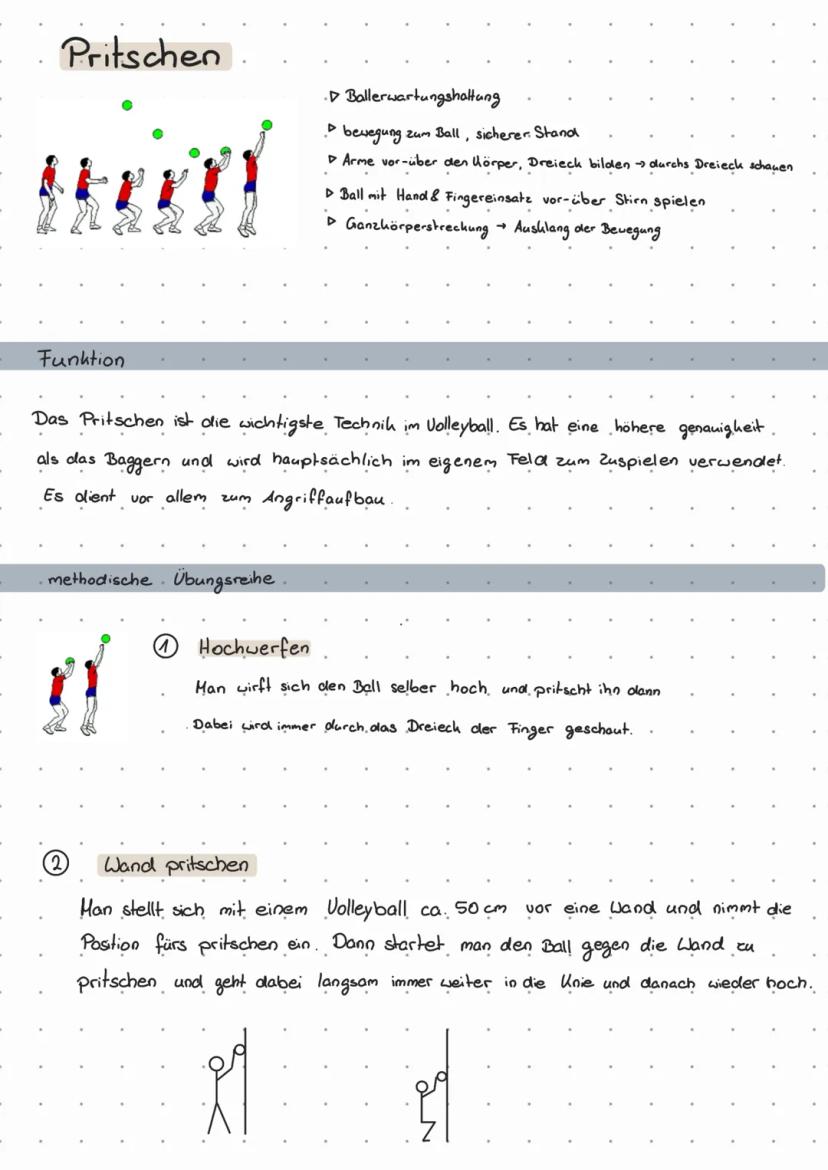 Pritschen
▷ Ballerwartungshaltung
▷ bewegung zum Ball, sicherer Stand
▷ Arme vor-über den Körper, Dreieck bilden → durchs Dreieck schauen
▷ Ball mit Hand & Fingereinsatz vor-über Stirn spielen
▷ Ganzkörperstreckung → Ausklang der Bewegung
Funktion
Das Pritschen ist die wichtigste Technik im Volleyball. Es hat eine höhere genauigkeit
als das Baggern und wird hauptsächlich im eigenem Feld zum Zuspielen verwendet.
Es dient vor allem zum Angriffaufbau.
methodische Übungsreihe
① Hochwerfen
Man wirft sich den Ball selber hoch und pritscht ihn dann
Dabei wird immer durch das Dreieck der Finger geschaut.
② Wand pritschen
Man stellt sich mit einem Volleyball ca. 50 cm vor eine Wand und nimmt die
Position fürs pritschen ein. Dann startet man den Ball gegen die Wand zu
pritschen und geht dabei langsam immer weiter in die Knie und danach wieder hoch.